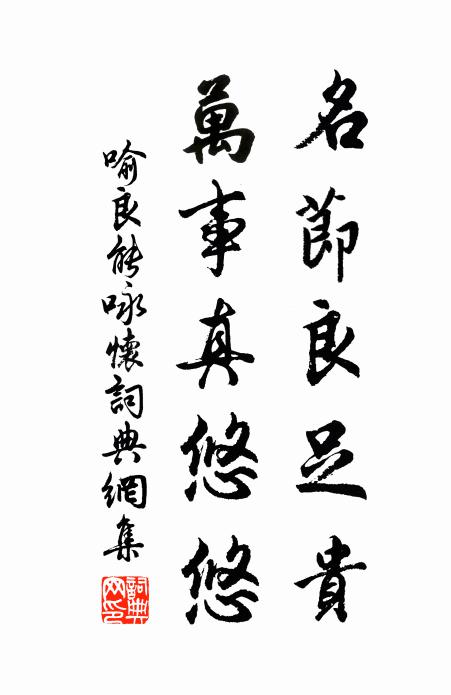 名節良足貴
萬事真悠悠
喻良能詠懷詞典網集